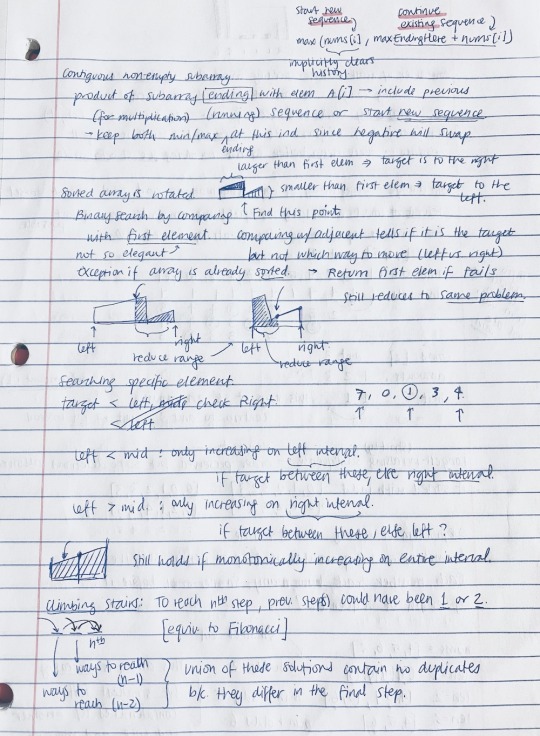 start new sequence
continue existing sequence
max(nums[i], maxEndingHere + nums[i])
implicitly clears history
Contiguous non-empty subarray
product of subarray [ending] with elem A[i] → include previous
(for multiplication) (running) sequence or start new sequence
→ keep both min/max ending at this ind since negative will swap
larger than first elem ⇒ target is to the right
Sorted array is rotated
} smaller than first elem ⇒ target to the left.
Binary search by comparing ↑ Find this point.
with first element. comparing w/ adjacent tells if it is the target
not so elegant but not which way to move (left vs right)
exception if array is already sorted. → Return first elem if fails
still reduces to same problem.
left right left right
reduce range → reduce range
Searching specific element.
target < left, mid, check Right.
< left
7, 0, 1, 3, 4
left < mid : only increasing on left interval.
if target between these, else right interval.
left > mid : only increasing on right interval.
if target between these, else left ?
still holds if monotonically increasing on entire interval.
Climbing stairs: To reach nth step, prev. step(s) could have been 1 or 2.
nth [equiv. to Fibonacci]
ways to reach (n-1)
ways to reach (n-2)
} union of these solutions contain no duplicates
b/c they differ in the final step.